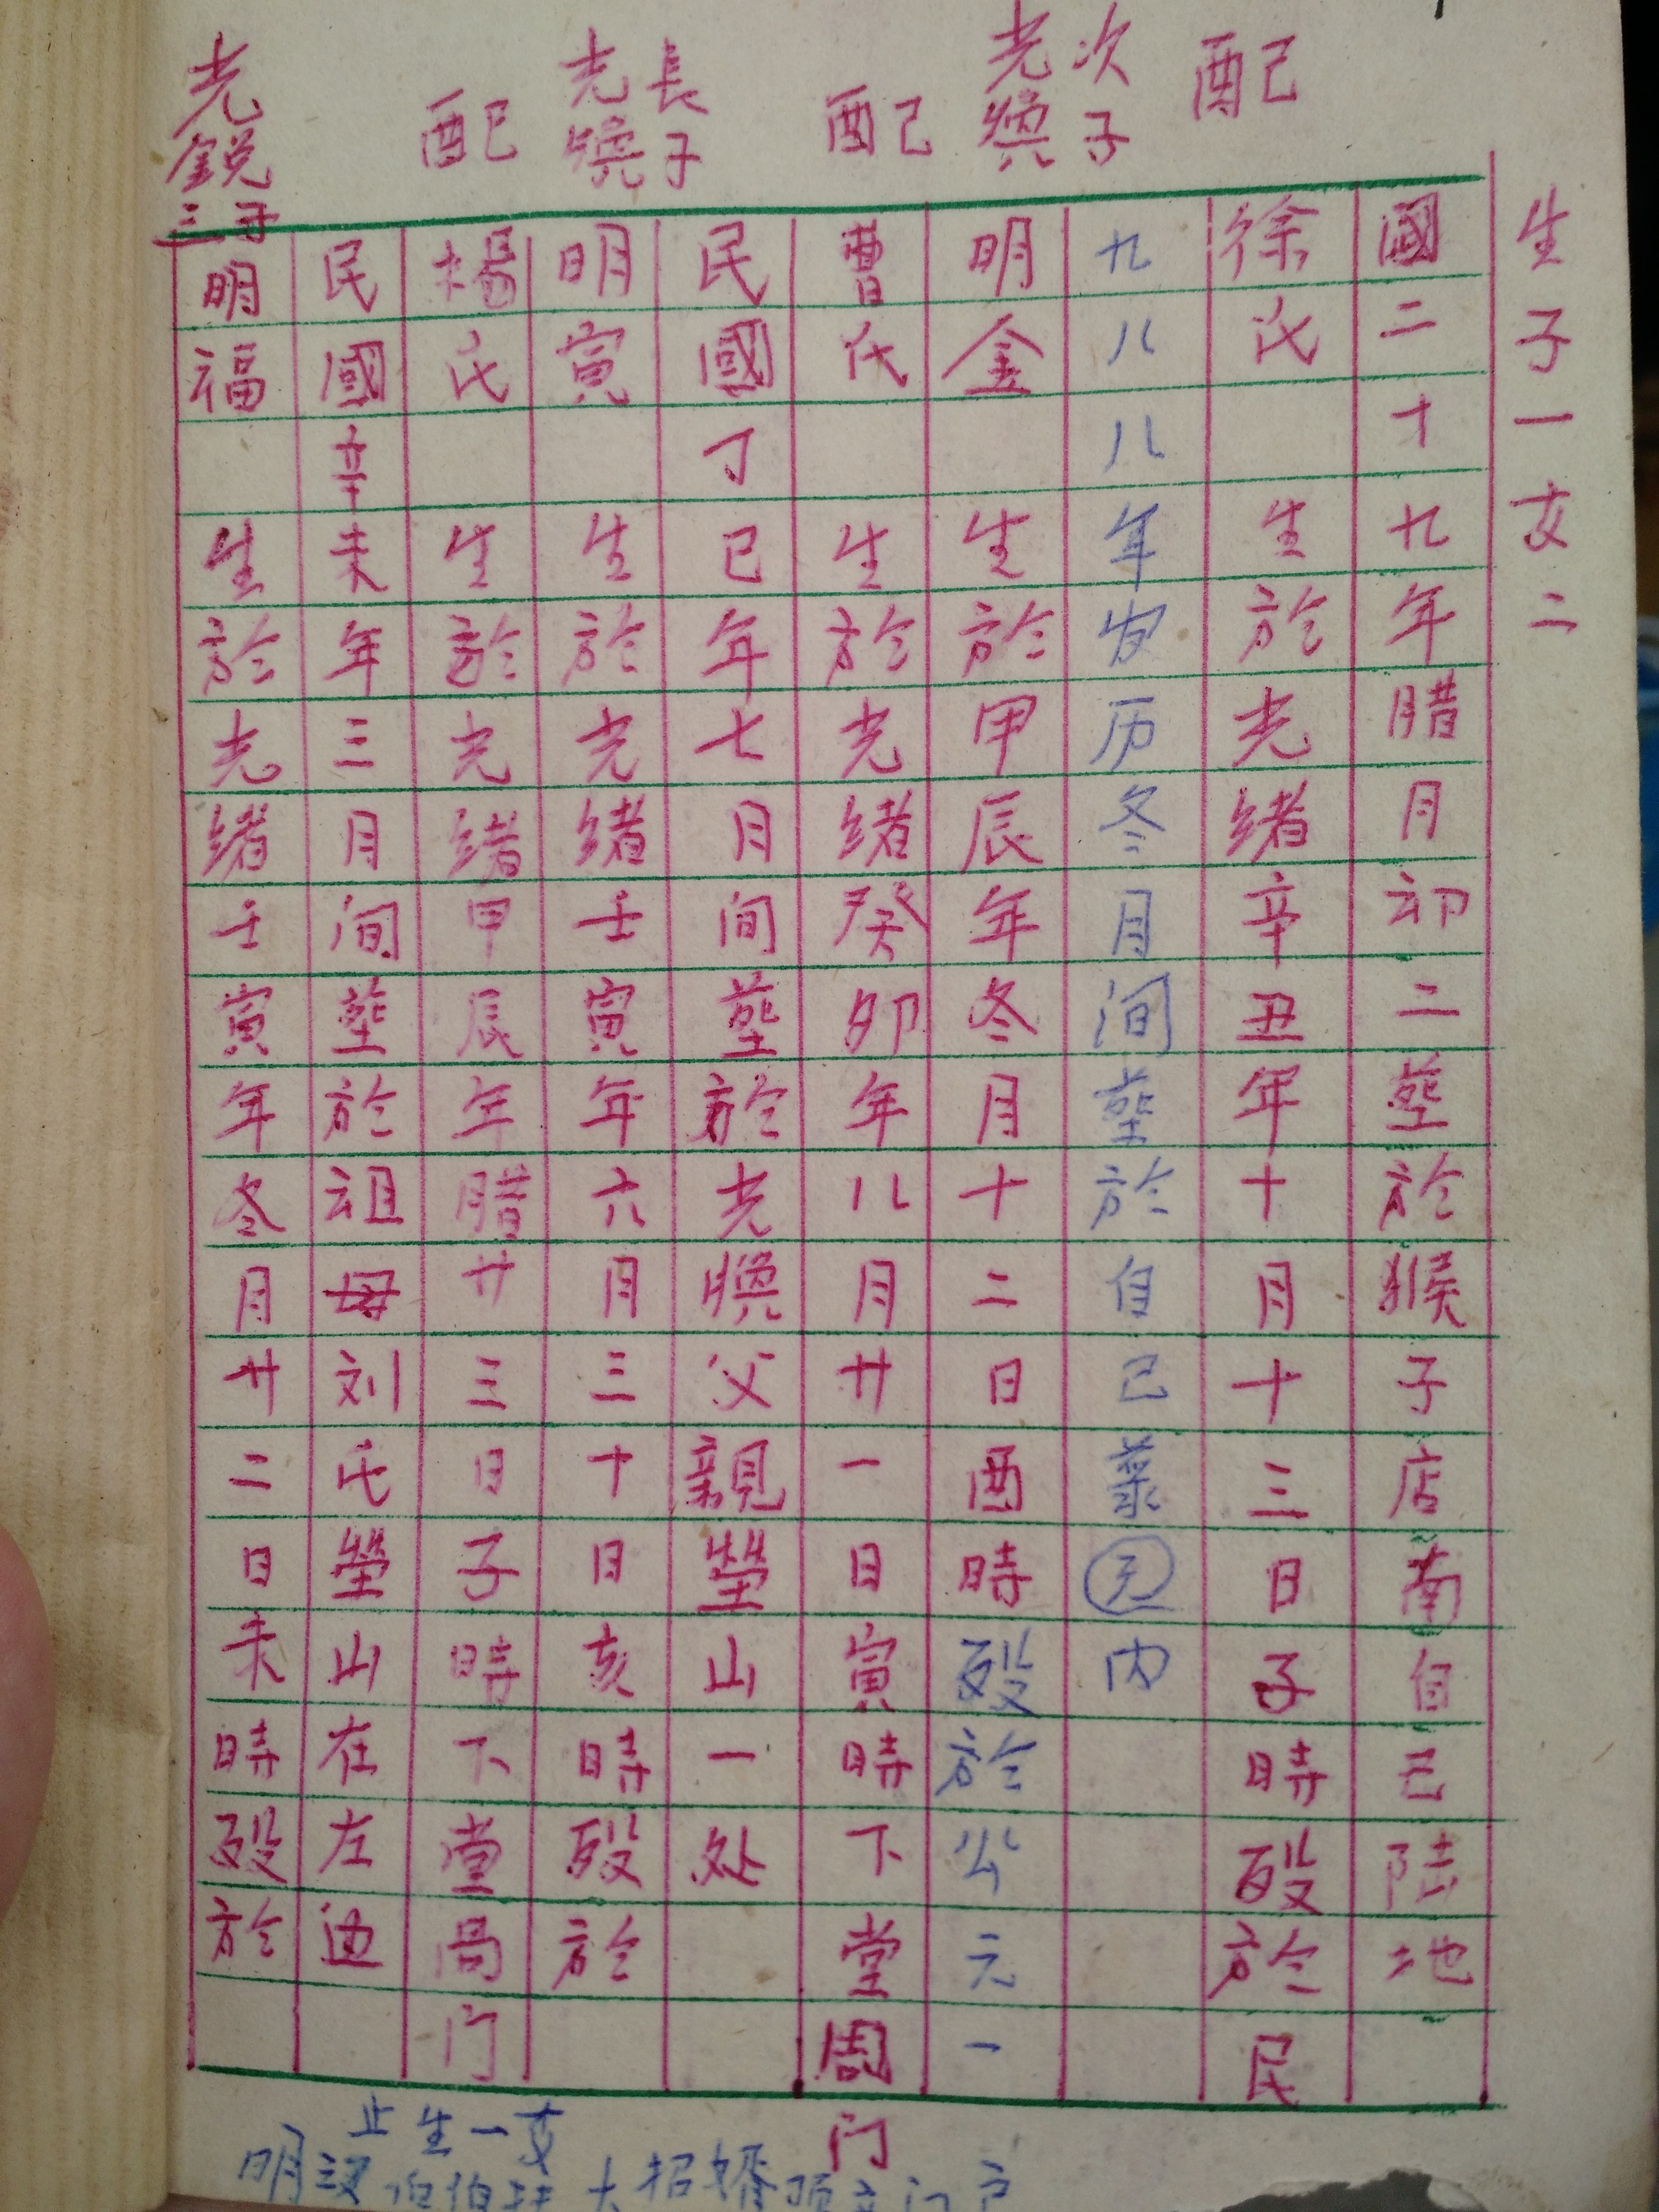 生子一女二
國二十九年腊月初二塟於猴子店南自己陆地
配
徐氏生於光緒辛丑年十月十三日子時殁於民
九八八年农历冬月间塟於自己菜园内
次子
光
明金生於甲辰年冬月十二日酉時殁於公元一
配
曹氏生於光緒癸卯年八月廿一日寅時下堂周门
長子
光
民國丁巳年七月间塟於光 父親塋山一处
明寅生於光緒壬寅年六月三十日亥時殁於
配
楊氏生於光緒甲辰年腊廿三日子時下堂 门
民國辛未年三月间塟於祖母刘氏塋山在左边
光銳三子
明福生於光緒壬寅年冬月廿二日未時殁於
止生一女
明 伯伯 大招婿顶立门户